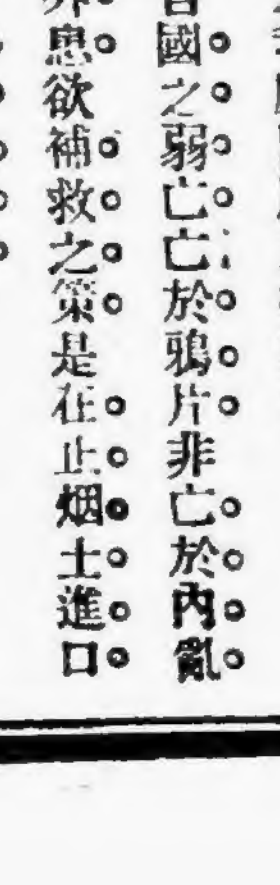 國之弱亡亡於鴉片非亡於內亂
患欲補救之策是在止烟土進口